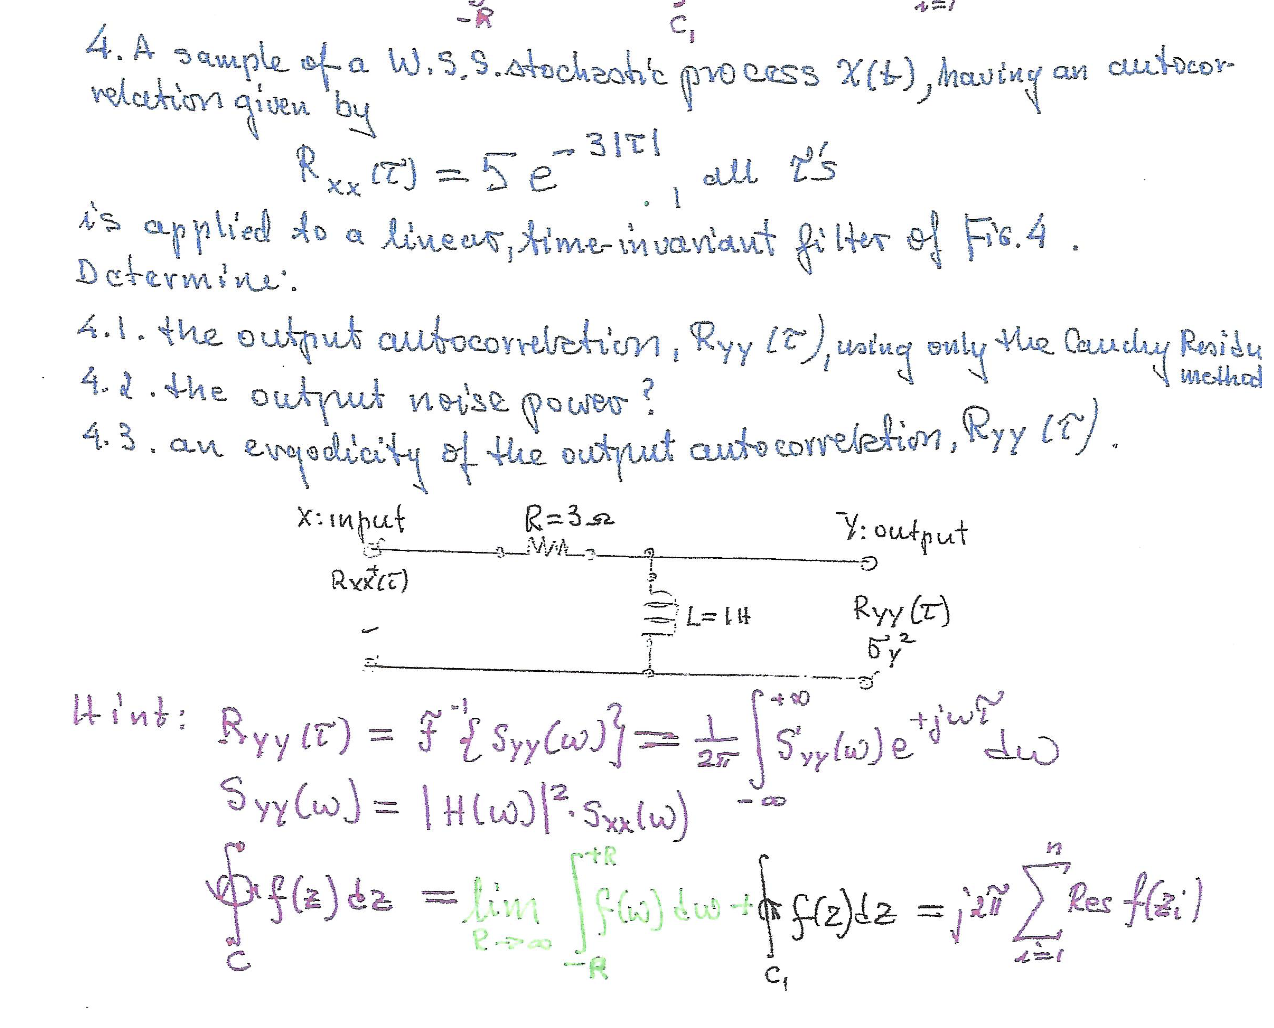 -R C₁ i=1
4. A sample of a W.S.S. stochastic process X(t), having an autocor-
relation given by
Rxx(τ) = 5 e^{-3|τ|}, all τ's
is applied to a linear, time-invariant filter of Fig. 4 .
Determine:
4.1. the output autocorrelation, Ryy (τ), using only the Cauchy Residu
method
4.2. the output noise power?
4.3. an ergodicity of the output autocorrelation, Ryy (τ).
X: input R=3Ω Y: output
+
Rxx(τ)
L=1H Ryy(τ)
- σy²
Hint: Ryy(τ) = F⁻¹{Syy(ω)} = 1/2π ∫_{-∞}^{+∞} Syy(ω) e^{+jωτ} dω
Syy(ω) = |H(ω)|² · Sxx(ω)
∮_C f(z)dz = lim_{R→∞} ∫_{-R}^{+R} f(ω)dω + ∫_{C₁} f(z)dz = j2π ∑_{i=1}^{n} Res f(zᵢ)